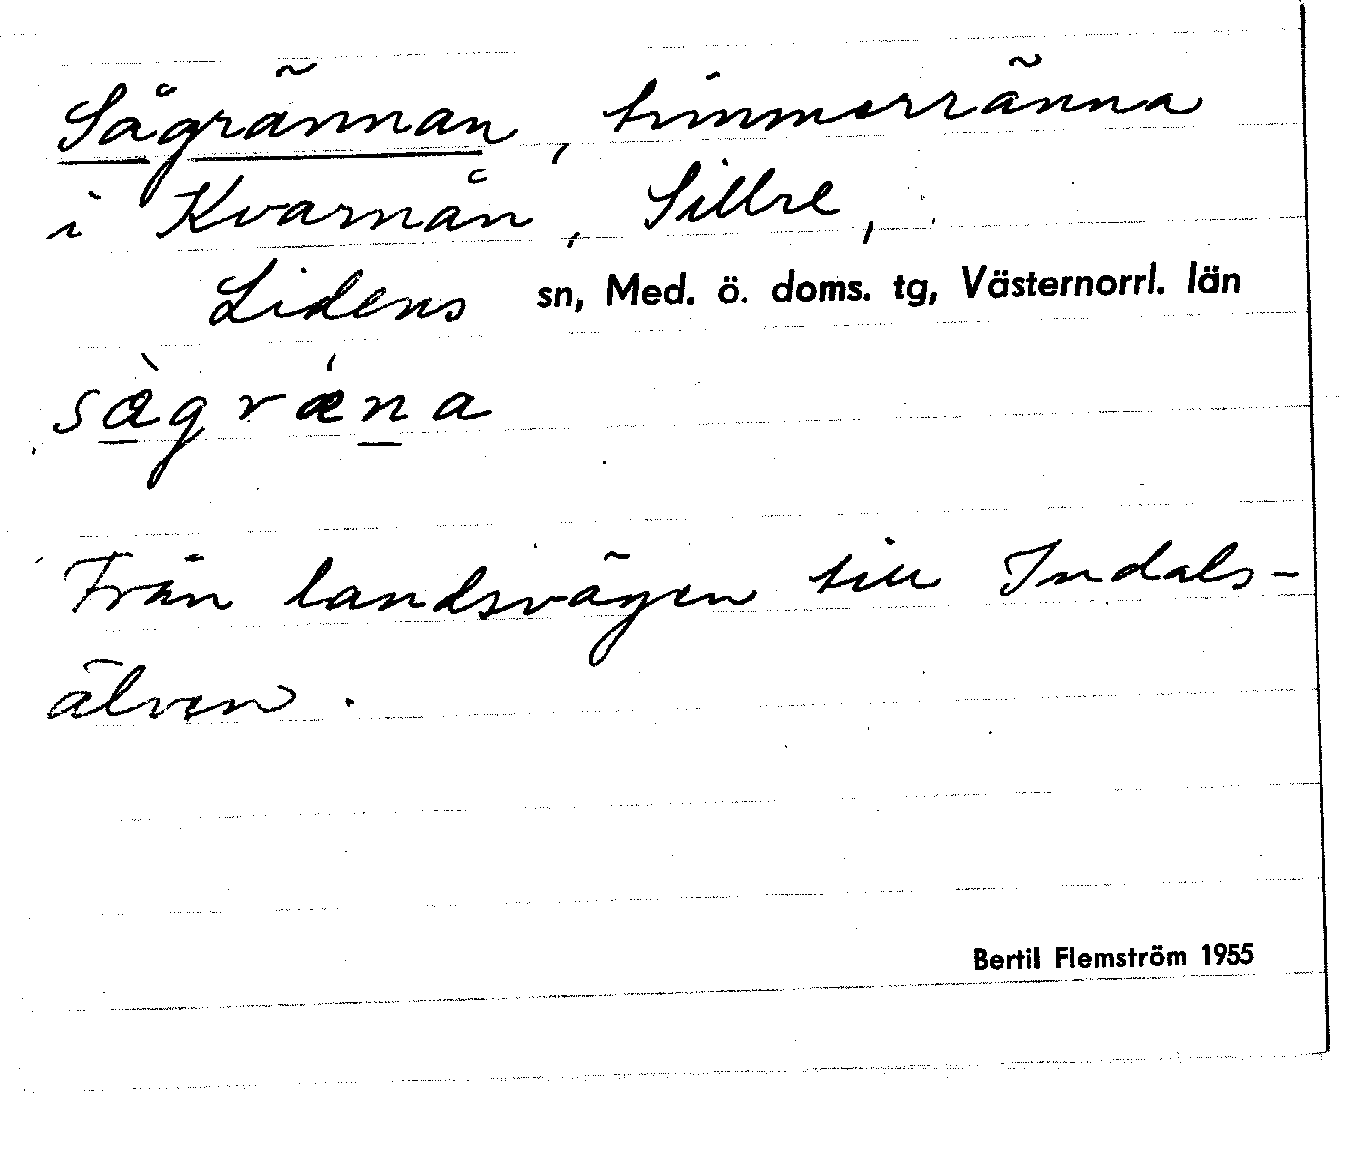 Sågrännan, timmerränna
i Kvarnån, Sillre,
Lidens sn, Med. ö. doms. tg, Västernorrl. län
sàgrǽna
Från landsvägen till Indals-
älven.
Bertil Flemström 1955